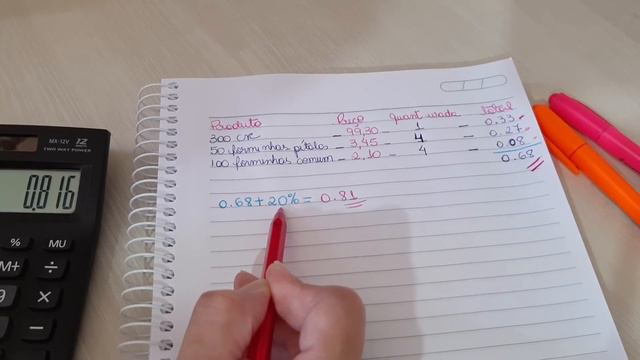 MX-12V 12
TWO WAY POWER
0.816
% MU
M+ ÷
9 ×
−
Produto Preço quant usada total
300 - 99,30 - 1 - 0.33
50 forminhas pétalas - 3,45 - 4 - 0.27
100 forminhas comum - 2,10 - 4 - 0.08
0.68
0.68 + 20% = 0.81